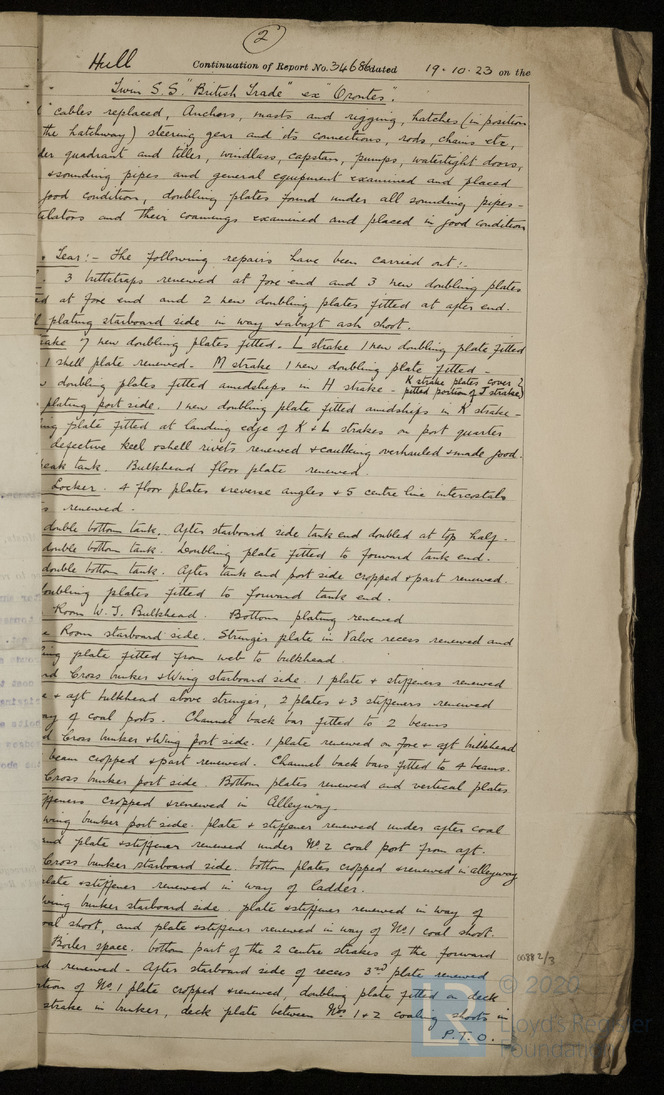 2
Hull Continuation of Report No. 34686 dated 19.10.23 on the
Twin S.S. "British Trade" ex "Orontes".
cables replaced, Anchors, masts and rigging, hatches (in position
the hatchway) steering gear and its connections, rods, chains etc,
der quadrant and tiller, windlass, capstan, pumps, watertight doors,
& sounding pipes and general equipment examined and placed
good condition, doubling plates found under all sounding pipes -
tilators and their coamings examined and placed in good condition
Tear:- The following repairs have been carried out:-
3 buttstraps renewed at fore end and 3 new doubling plates
ed at fore end and 2 new doubling plates fitted at after end.
plating starboard side in way & abaft ash shoot.
rake 7 new doubling plates fitted. L strake 1 new doubling plate fitted
1 shell plate renewed - M strake 1 new doubling plate fitted -
w doubling plates fitted amidships in H strake - K strake plates cover
pitted portion of J strake)
plating port side. 1 new doubling plate fitted amidships in K strake -
ing plate fitted at landing edge of K & L strakes on port quarter
defective keel & shell rivets renewed & caulking overhauled & made good.
eak tank. Bulkhead floor plate renewed.
Locker. 4 floor plates & reverse angles & 5 centre line intercostals
s renewed.
double bottom tank. After starboard side tank end doubled at top half.
double bottom tank. Doubling plate fitted to forward tank end.
double bottom tank. After tank end port side cropped & part renewed.
doubling plates fitted to forward tank end.
Room W.T. Bulkhead. Bottom plating renewed
e Room starboard side. Stringer plate in Valve recess renewed and
ing plate fitted from web to bulkhead.
rd Cross bunker & Wing starboard side. 1 plate & stiffeners renewed
e & aft bulkhead above stringer, 2 plates & 3 stiffeners renewed
ay of coal ports. Channel back bar fitted to 2 beams
d Cross bunker & Wing port side. 1 plate renewed on fore & aft bulkhead
beam cropped & part renewed. Channel back bars fitted to 4 beams.
Cross bunker port side. Bottom plates renewed and vertical plates
iffeners cropped & renewed in Alleyway.
wing bunker port side. plate & stiffener renewed under after coal
and plate & stiffener renewed under No. 2 coal port from aft.
Cross bunker starboard side. bottom plates cropped & renewed in alleyway
plate & stiffener renewed in way of ladder.
wing bunker starboard side. plate & stiffener renewed in way of
oal shoot, and plate & stiffener renewed in way of No. 1 coal shoot.
Boiler space. bottom part of the 2 centre strakes of the forward
d renewed - After starboard side of recess 3rd plate renewed
tion of No. 1 plate cropped & renewed, doubling plate fitted on deck
strake in bunker, deck plate between Nos 1 & 2 coaling shoots in
P.T.O.
00882/3
LR
© 2020
Lloyd's Register
Foundation